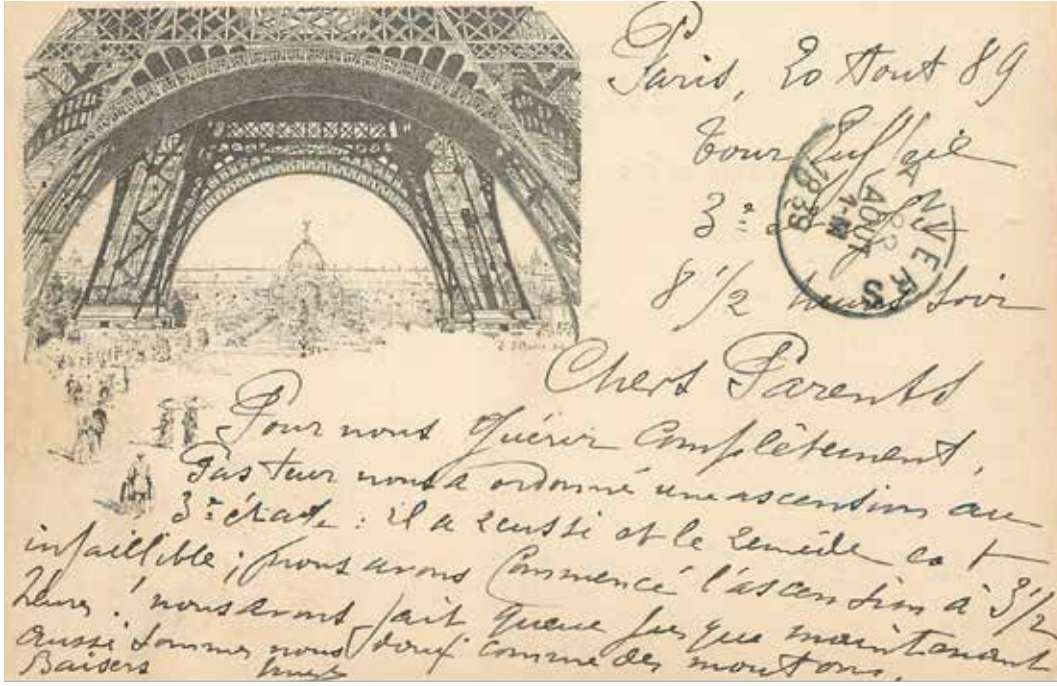 Paris, 20 Aout 89
Tour Eiffeil
3e
8 1/2 heures Soir
ANVERS
AOUT
1889
Chers Parents
Pour nous guérir Complètement,
Pasteur nous a ordonné une ascension au
3e étage : il a reussi et le remède est
infaillible ; nous avons Commencé l'ascension à 3 1/2
heures ! nous avons fait queue jusque maintenant
aussi sommes nous doux comme des moutons.
Baisers